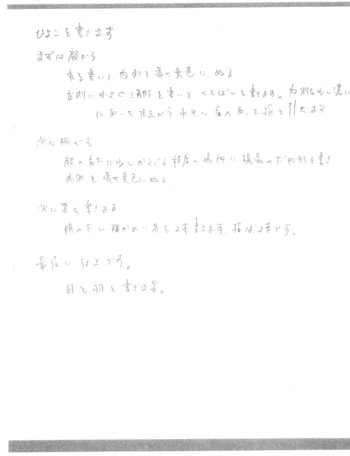 ひよこを書きます
まずは顔から
丸を書いて内側を薄く黄色にぬる
右側に小さく三角形を書いて くちばしを書きます。内側を少し濃い
に向った頂点から水平に左へ向って線を引きます
次に胴です
顔の左下に少しかぶる程度の場所に横長のだ円形を書き
内側を薄く黄色にぬる
次に足を書きます
胴の下に縦長めに足を2本書きます。指は2本です。
最後に仕上です。
目と羽を書きます。